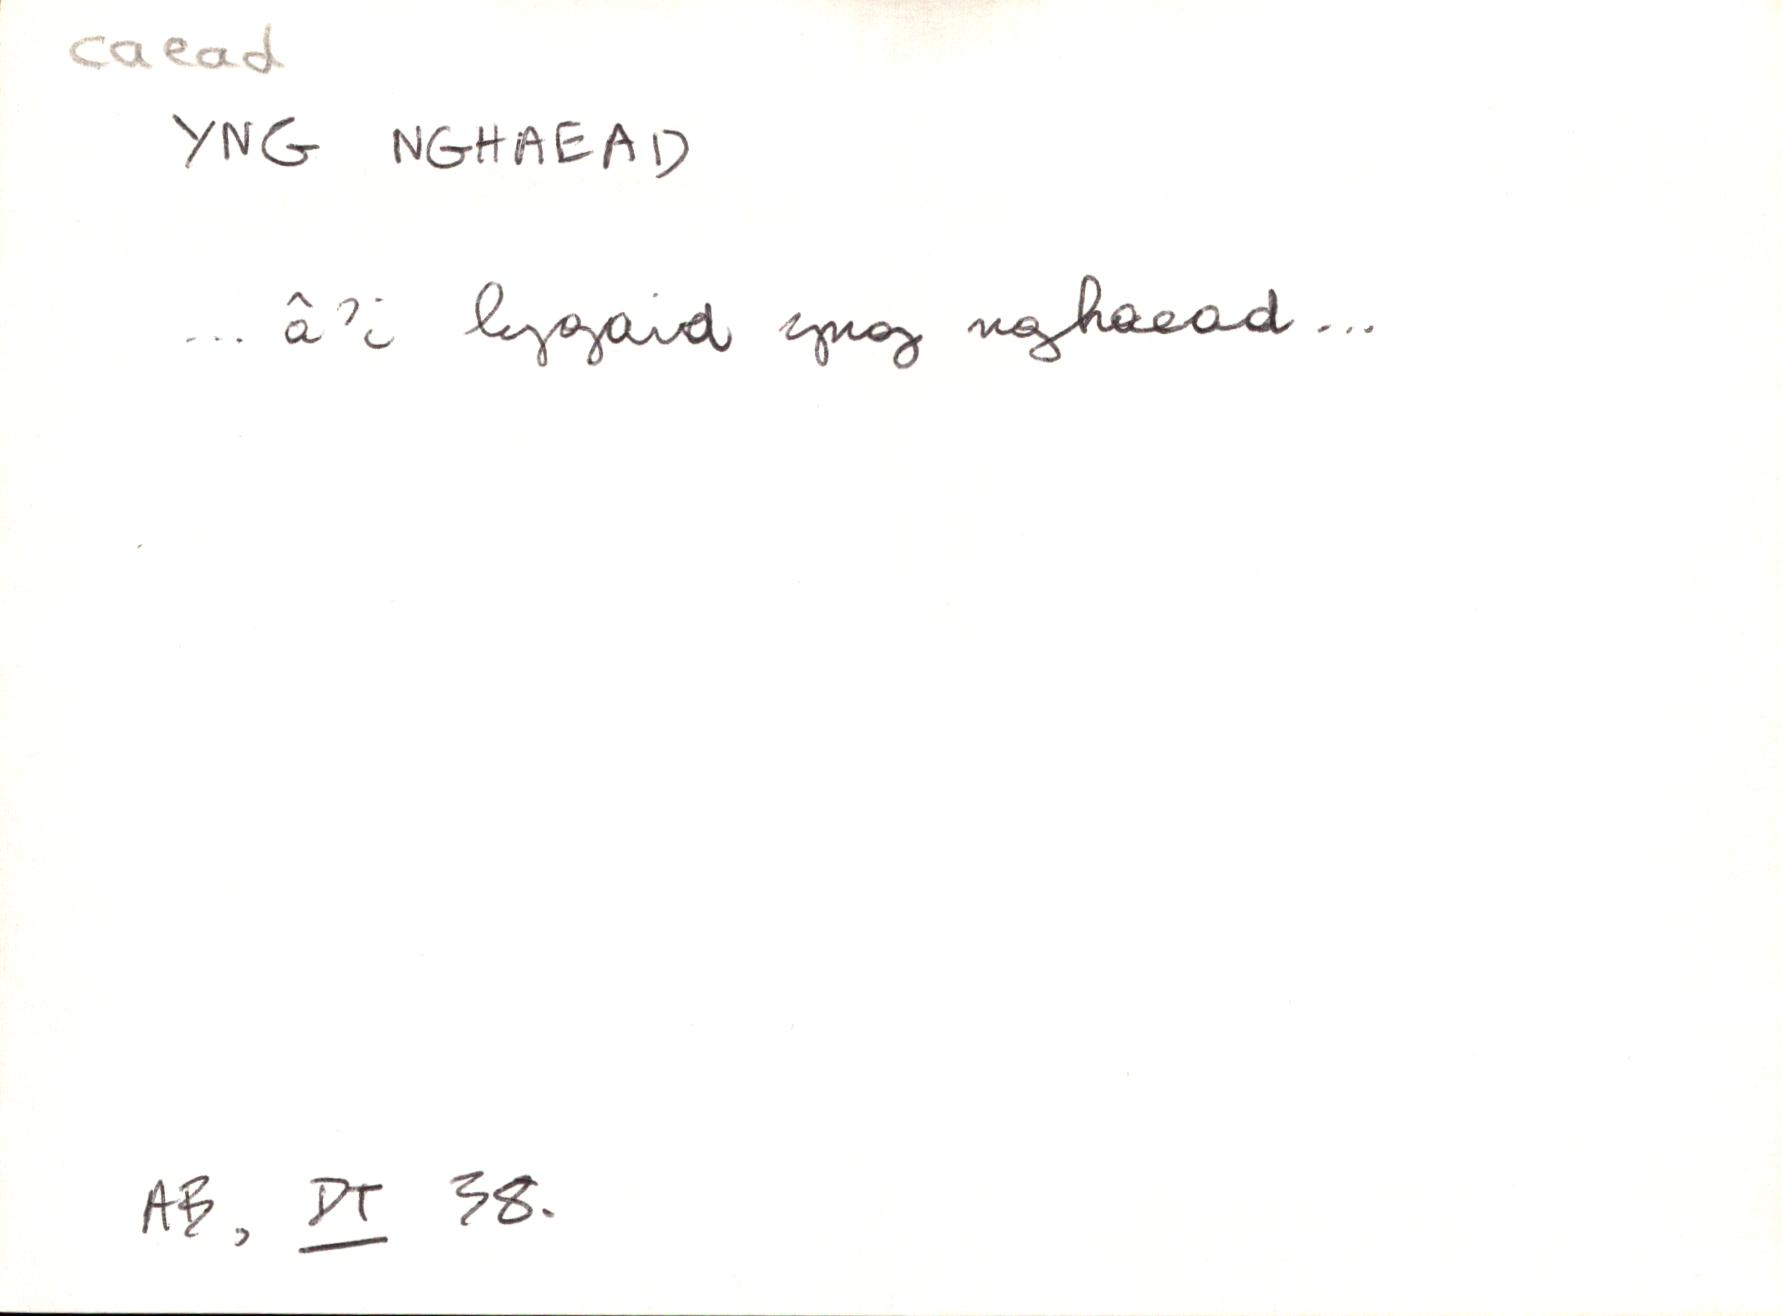 caead
YNG NGHAEAD
... â'i lygaid yng nghaead ...
AB, DT 38.